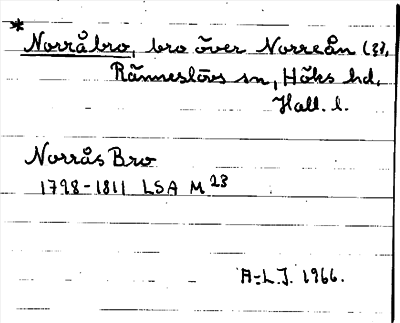 * Norråbro, bro över Norreån (?),
Ränneslövs sn, Höks hd,
Hall. l.
Norrås Bro
1798-1811 LSA M 23
A-L.J. 1966.